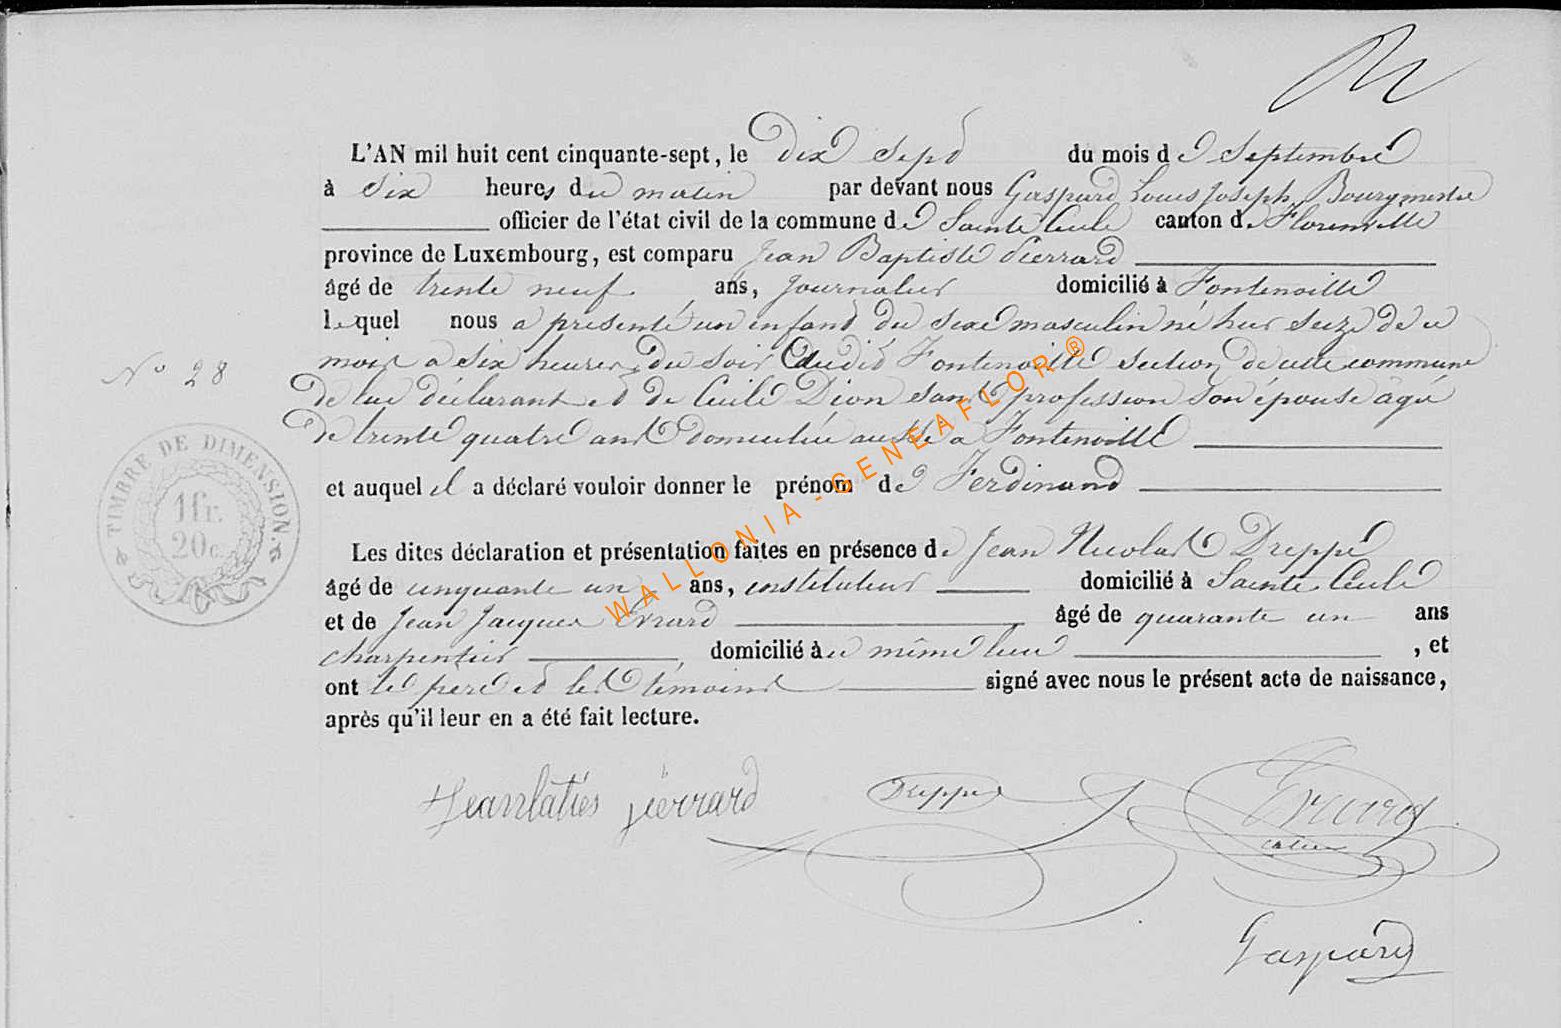 L'AN mil huit cent cinquante-sept, le Dix Sept du mois de Septembre
à Six heures du matin par devant nous Gaspard Louis Joseph Bourgmestre
officier de l'état civil de la commune de Sainte Cecile canton de Florenville
province de Luxembourg, est comparu Jean Baptiste Pierrard
âgé de trente neuf ans, Journalier domicilié à Fontenoille
lequel nous a présenté un enfant du Sexe masculin né hier Seize de ce
mois a Six heures du Soir Audit Fontenoille section de cette commune
N° 28
de lui déclarant et de Cecile Dion sans profession Son épouse âgée
de trente quatre ans domiciliée aussi a Fontenoille
et auquel il a déclaré vouloir donner le prénom de Ferdinand
TIMBRE DE DIMENSION.
1 fr.
20 c.
Les dites déclaration et présentation faites en présence de Jean Nicolas Dreppe
âgé de cinquante un ans, instituteur domicilié à Sainte Cecile
et de Jean Jacques Evrard âgé de quarante un ans
charpentier domicilié à ce même lieu , et
ont le père et les témoins signé avec nous le présent acte de naissance,
après qu'il leur en a été fait lecture.
WALLONIA-GENEAFLOR®
pierrard Dreppe Evrard
Gaspard